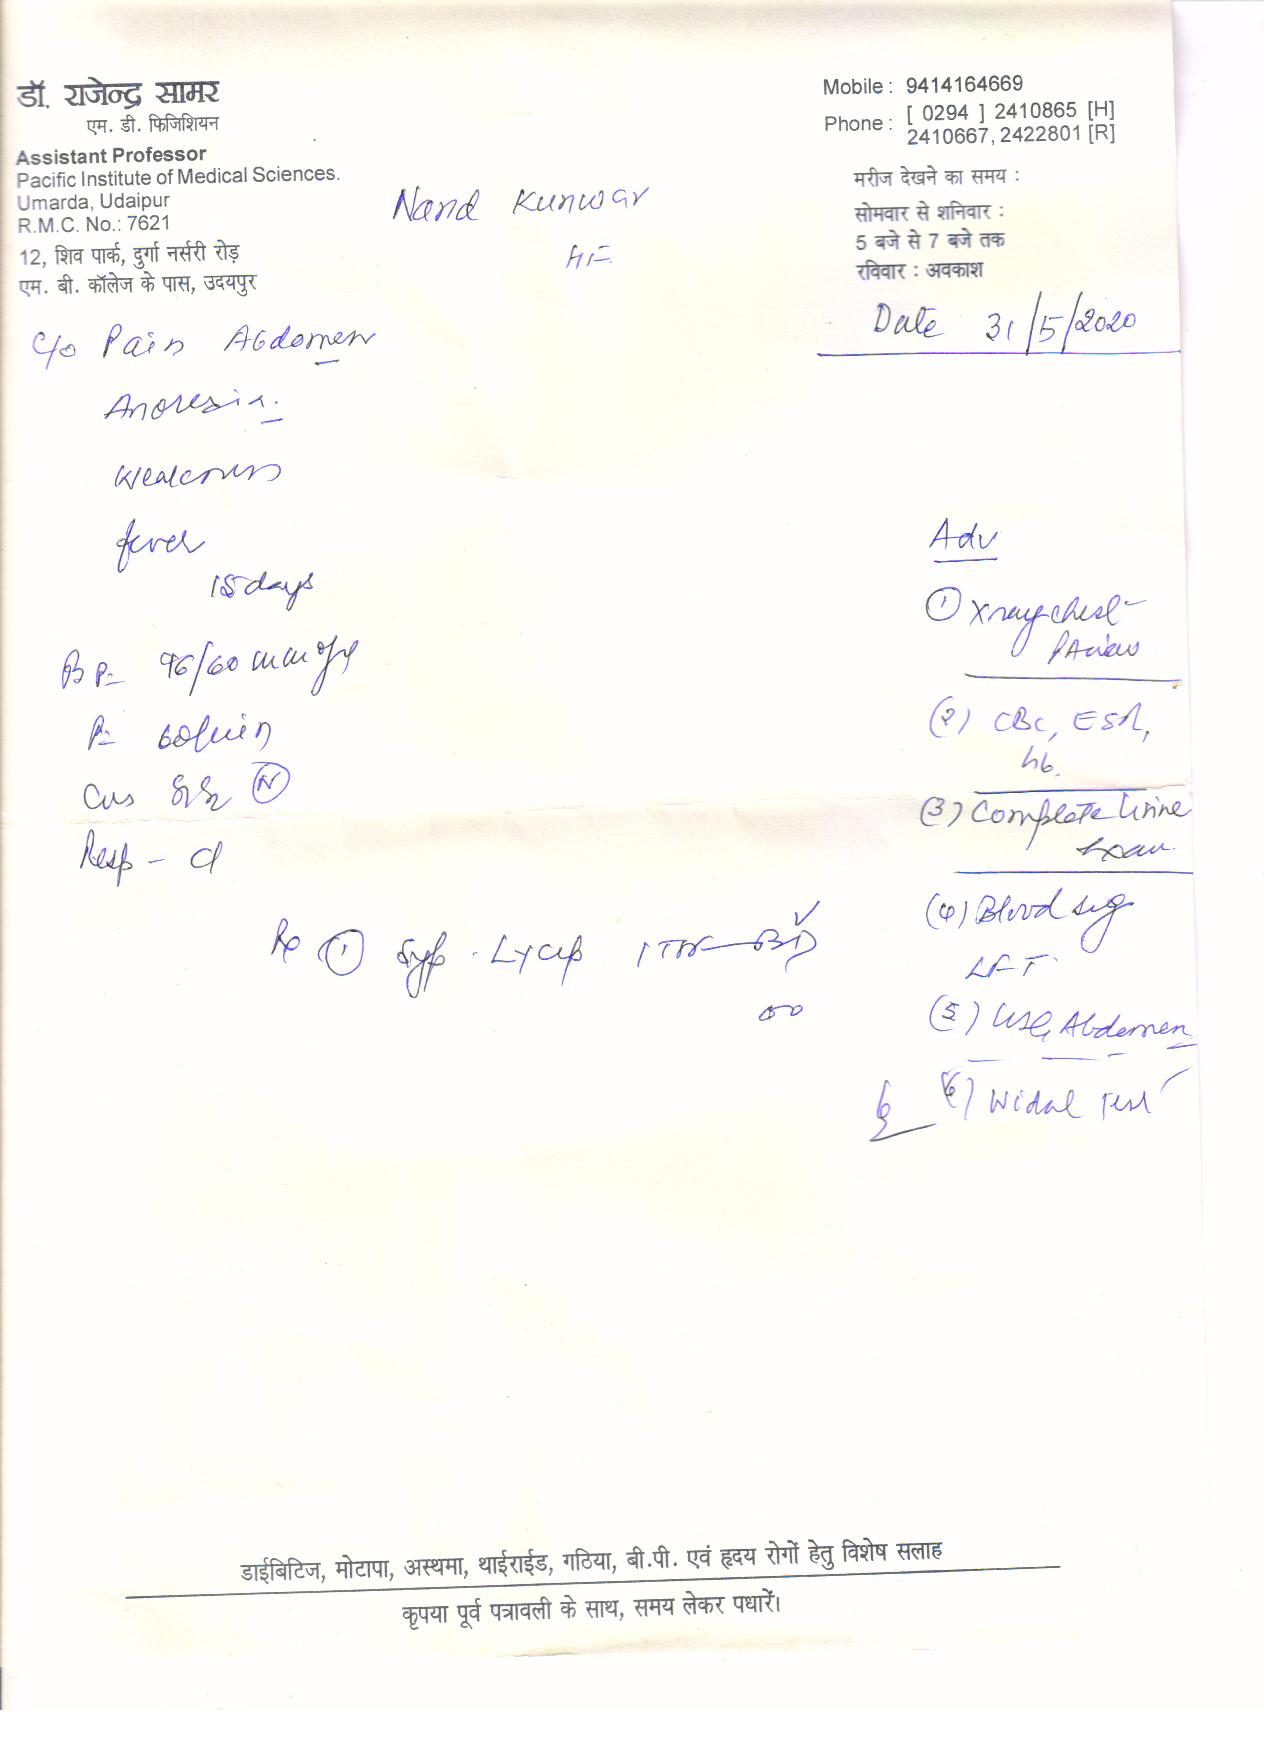 डॉ. राजेन्द्र सामर
एम. डी. फिजिशियन
Assistant Professor
Pacific Institute of Medical Sciences.
Umarda, Udaipur
R.M.C. No.: 7621
12, शिव पार्क, दुर्गा नर्सरी रोड़
एम. बी. कॉलेज के पास, उदयपुर
Mobile : 9414164669
Phone : [ 0294 ] 2410865 [H]
2410667, 2422801 [R]
मरीज देखने का समय :
सोमवार से शनिवार :
5 बजे से 7 बजे तक
रविवार : अवकाश
Nand Kunwar
Date 31/5/2020
c/o Pain Abdomen
Anorexia
Weakness
fever
15 days
BP= 96/60 mm Hg
P= 60/min
CVS S1S2 (N)
Resp - Cl
Rx (1) Syp. Lycup 1 TSF BD
Adv
(1) Xray chest
PA view
(2) CBC, ESR,
Hb.
(3) Complete Urine
Exam.
(4) Blood sug
LFT
(5) USG Abdomen
(6) Widal Test
डाईबिटिज, मोटापा, अस्थमा, थाईराईड, गठिया, बी.पी. एवं हृदय रोगों हेतु विशेष सलाह
कृपया पूर्व पत्रावली के साथ, समय लेकर पधारें।